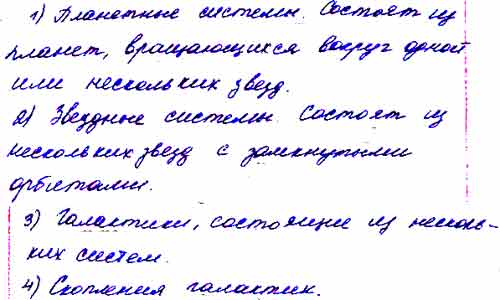 1) Планетные системы. Состоят из
планет, вращающихся вокруг одной
или нескольких звезд.
2) Звездные системы. Состоят из
нескольких звезд с замкнутыми
орбитами.
3) Галактики, состоящие из несколь-
ких систем.
4) Скопления галактик.